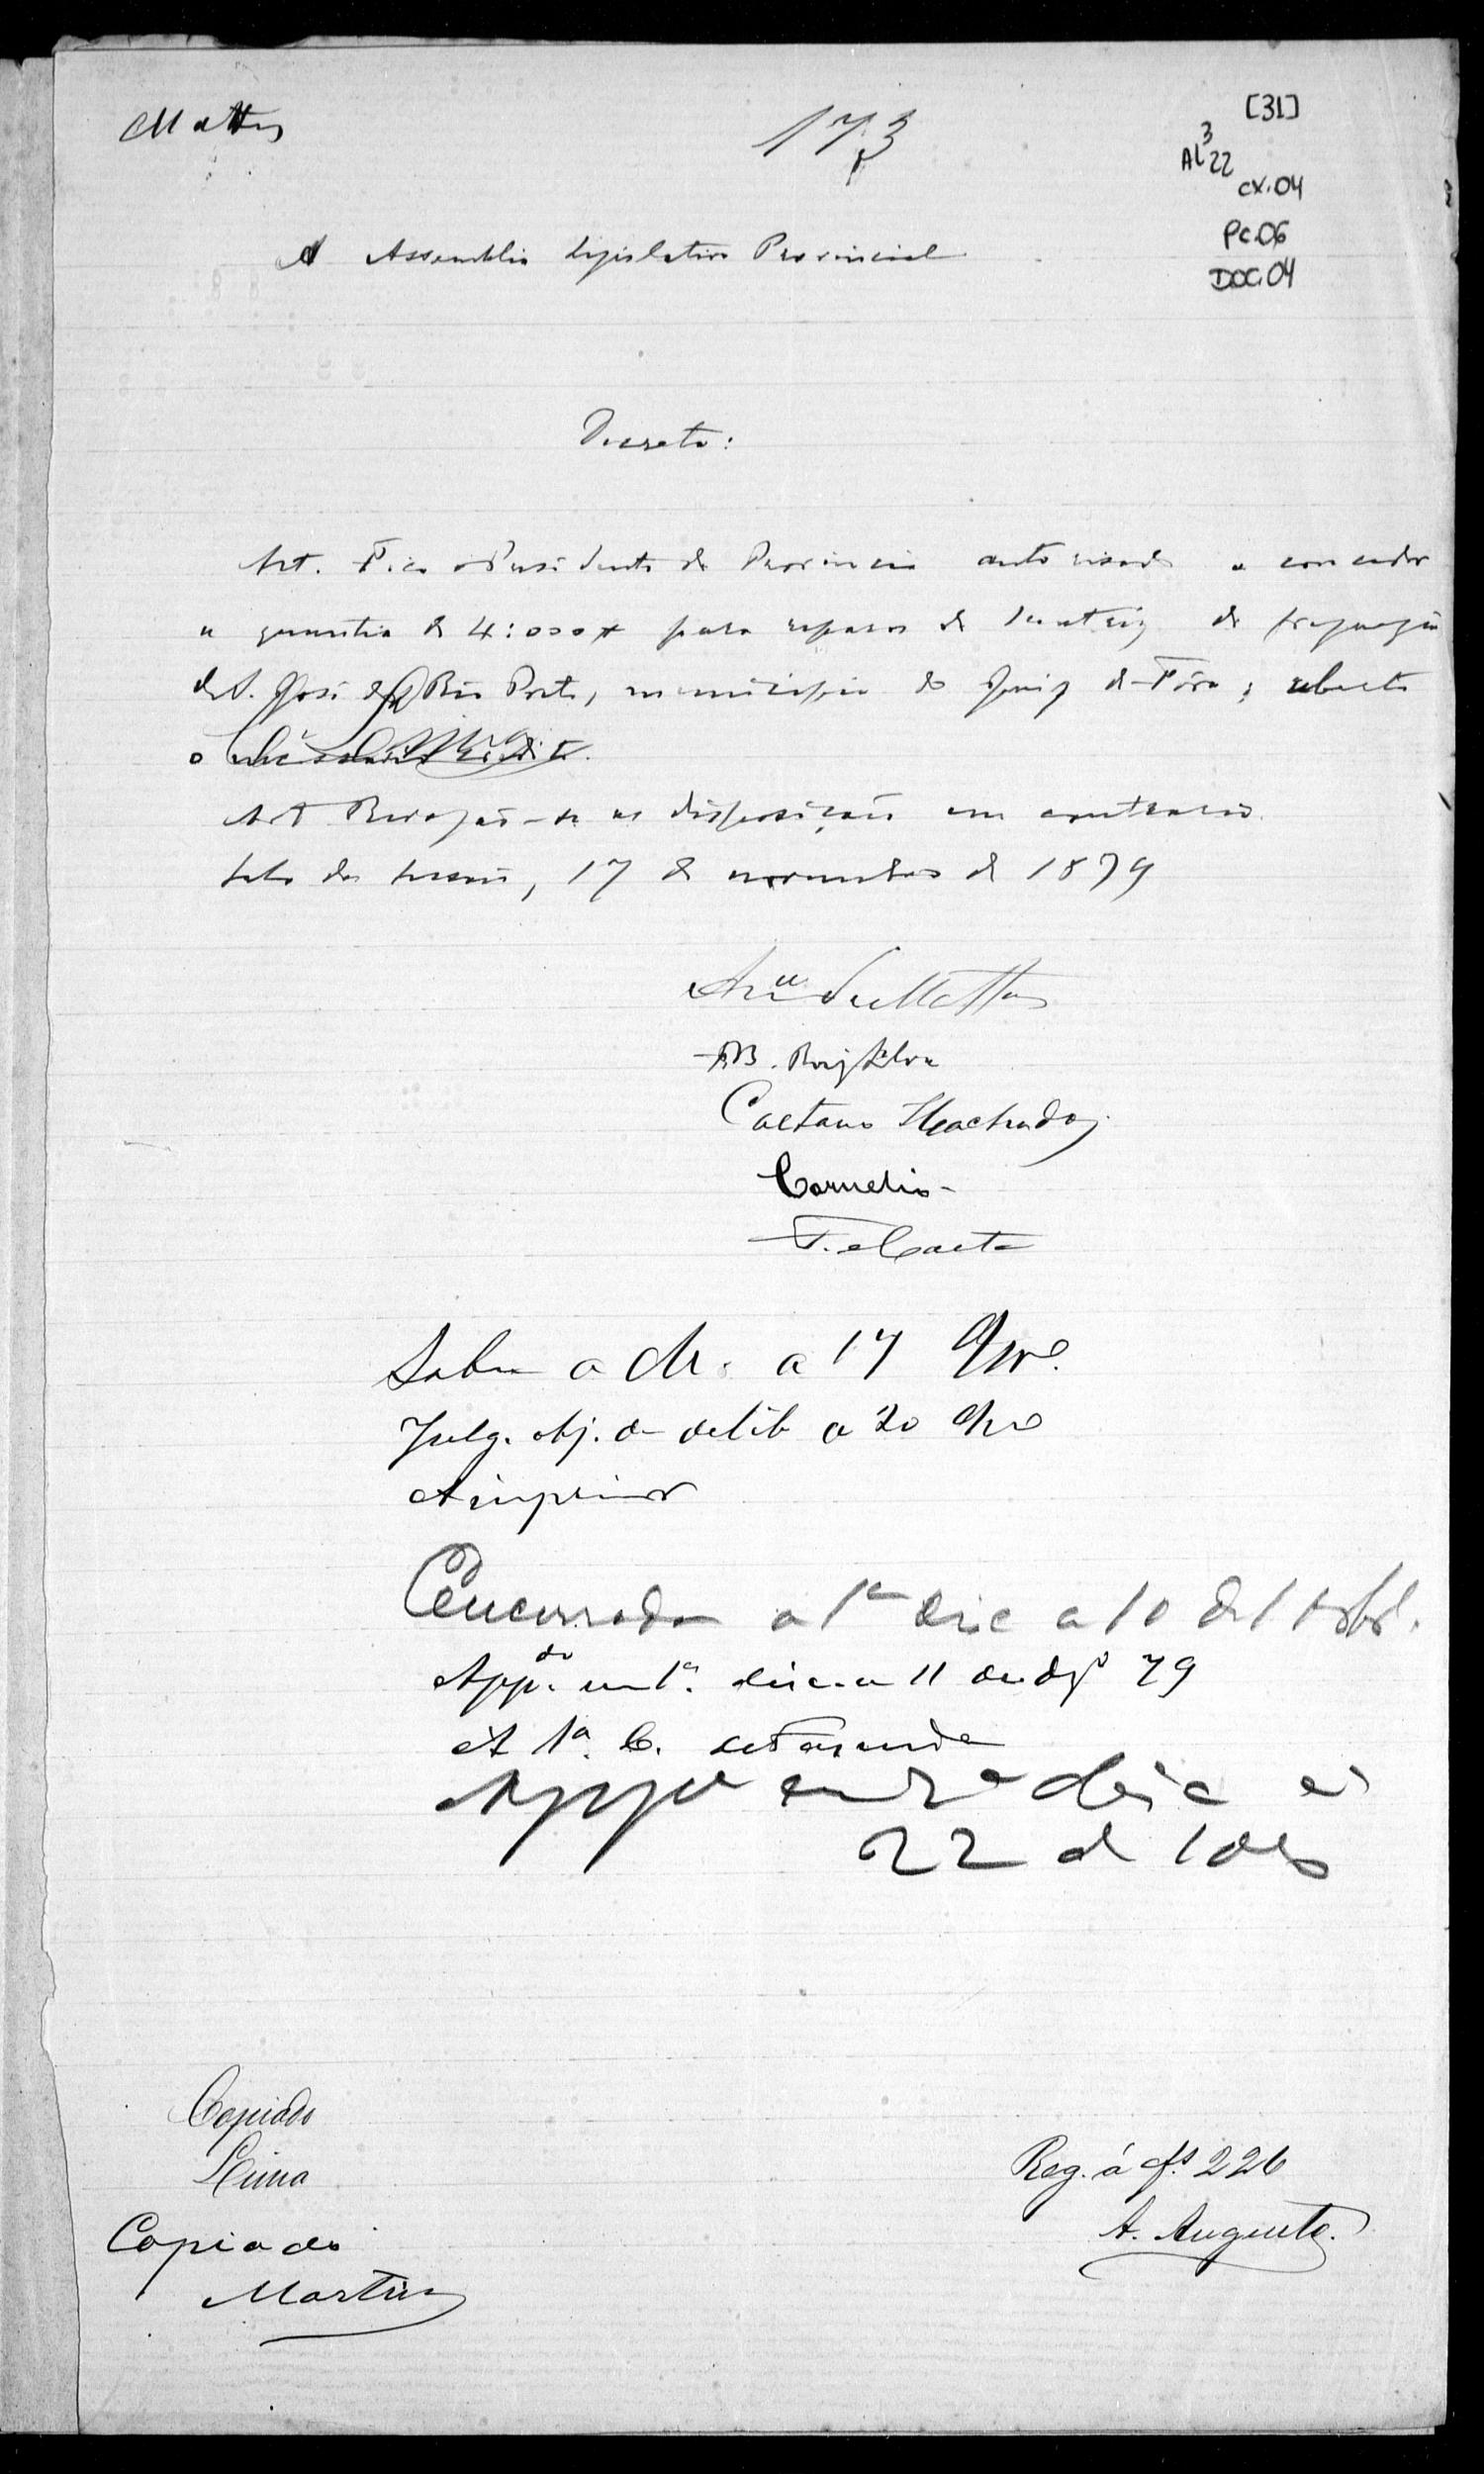 Mattos
173
[31]
AL 3 22
CX.04
PC.06
DOC.04
A Assemblea Legislativa Provincial
Decreta:
Art. Fica o Presidente da Provincia autorisado a conceder
a quantia de 4:000$ para reparos da matriz da freguezia
de S. José do Rio Preto, municipio do Juiz de Fóra; aberto
o
Art Revogão-se as disposições em contrario.
Sala das sessões, 17 de novembro de 1879
de Mattos
Silva
Caetano Machado
Cornelio
F.
Sobre a M. a 17 9bro.
Julg. obj. de delib a 20 9bro
A imprimir
Encerrada a 1ª disc a 10 de
Appdo. em 1ª. disc. a 11 de dzo 79
A 1ª. C. de Fazenda
Appdo em 2ª disc a
22 de 10bro
Copiado
Lima
Copiado
Martins
Reg. á fs. 226
A. Augusto.